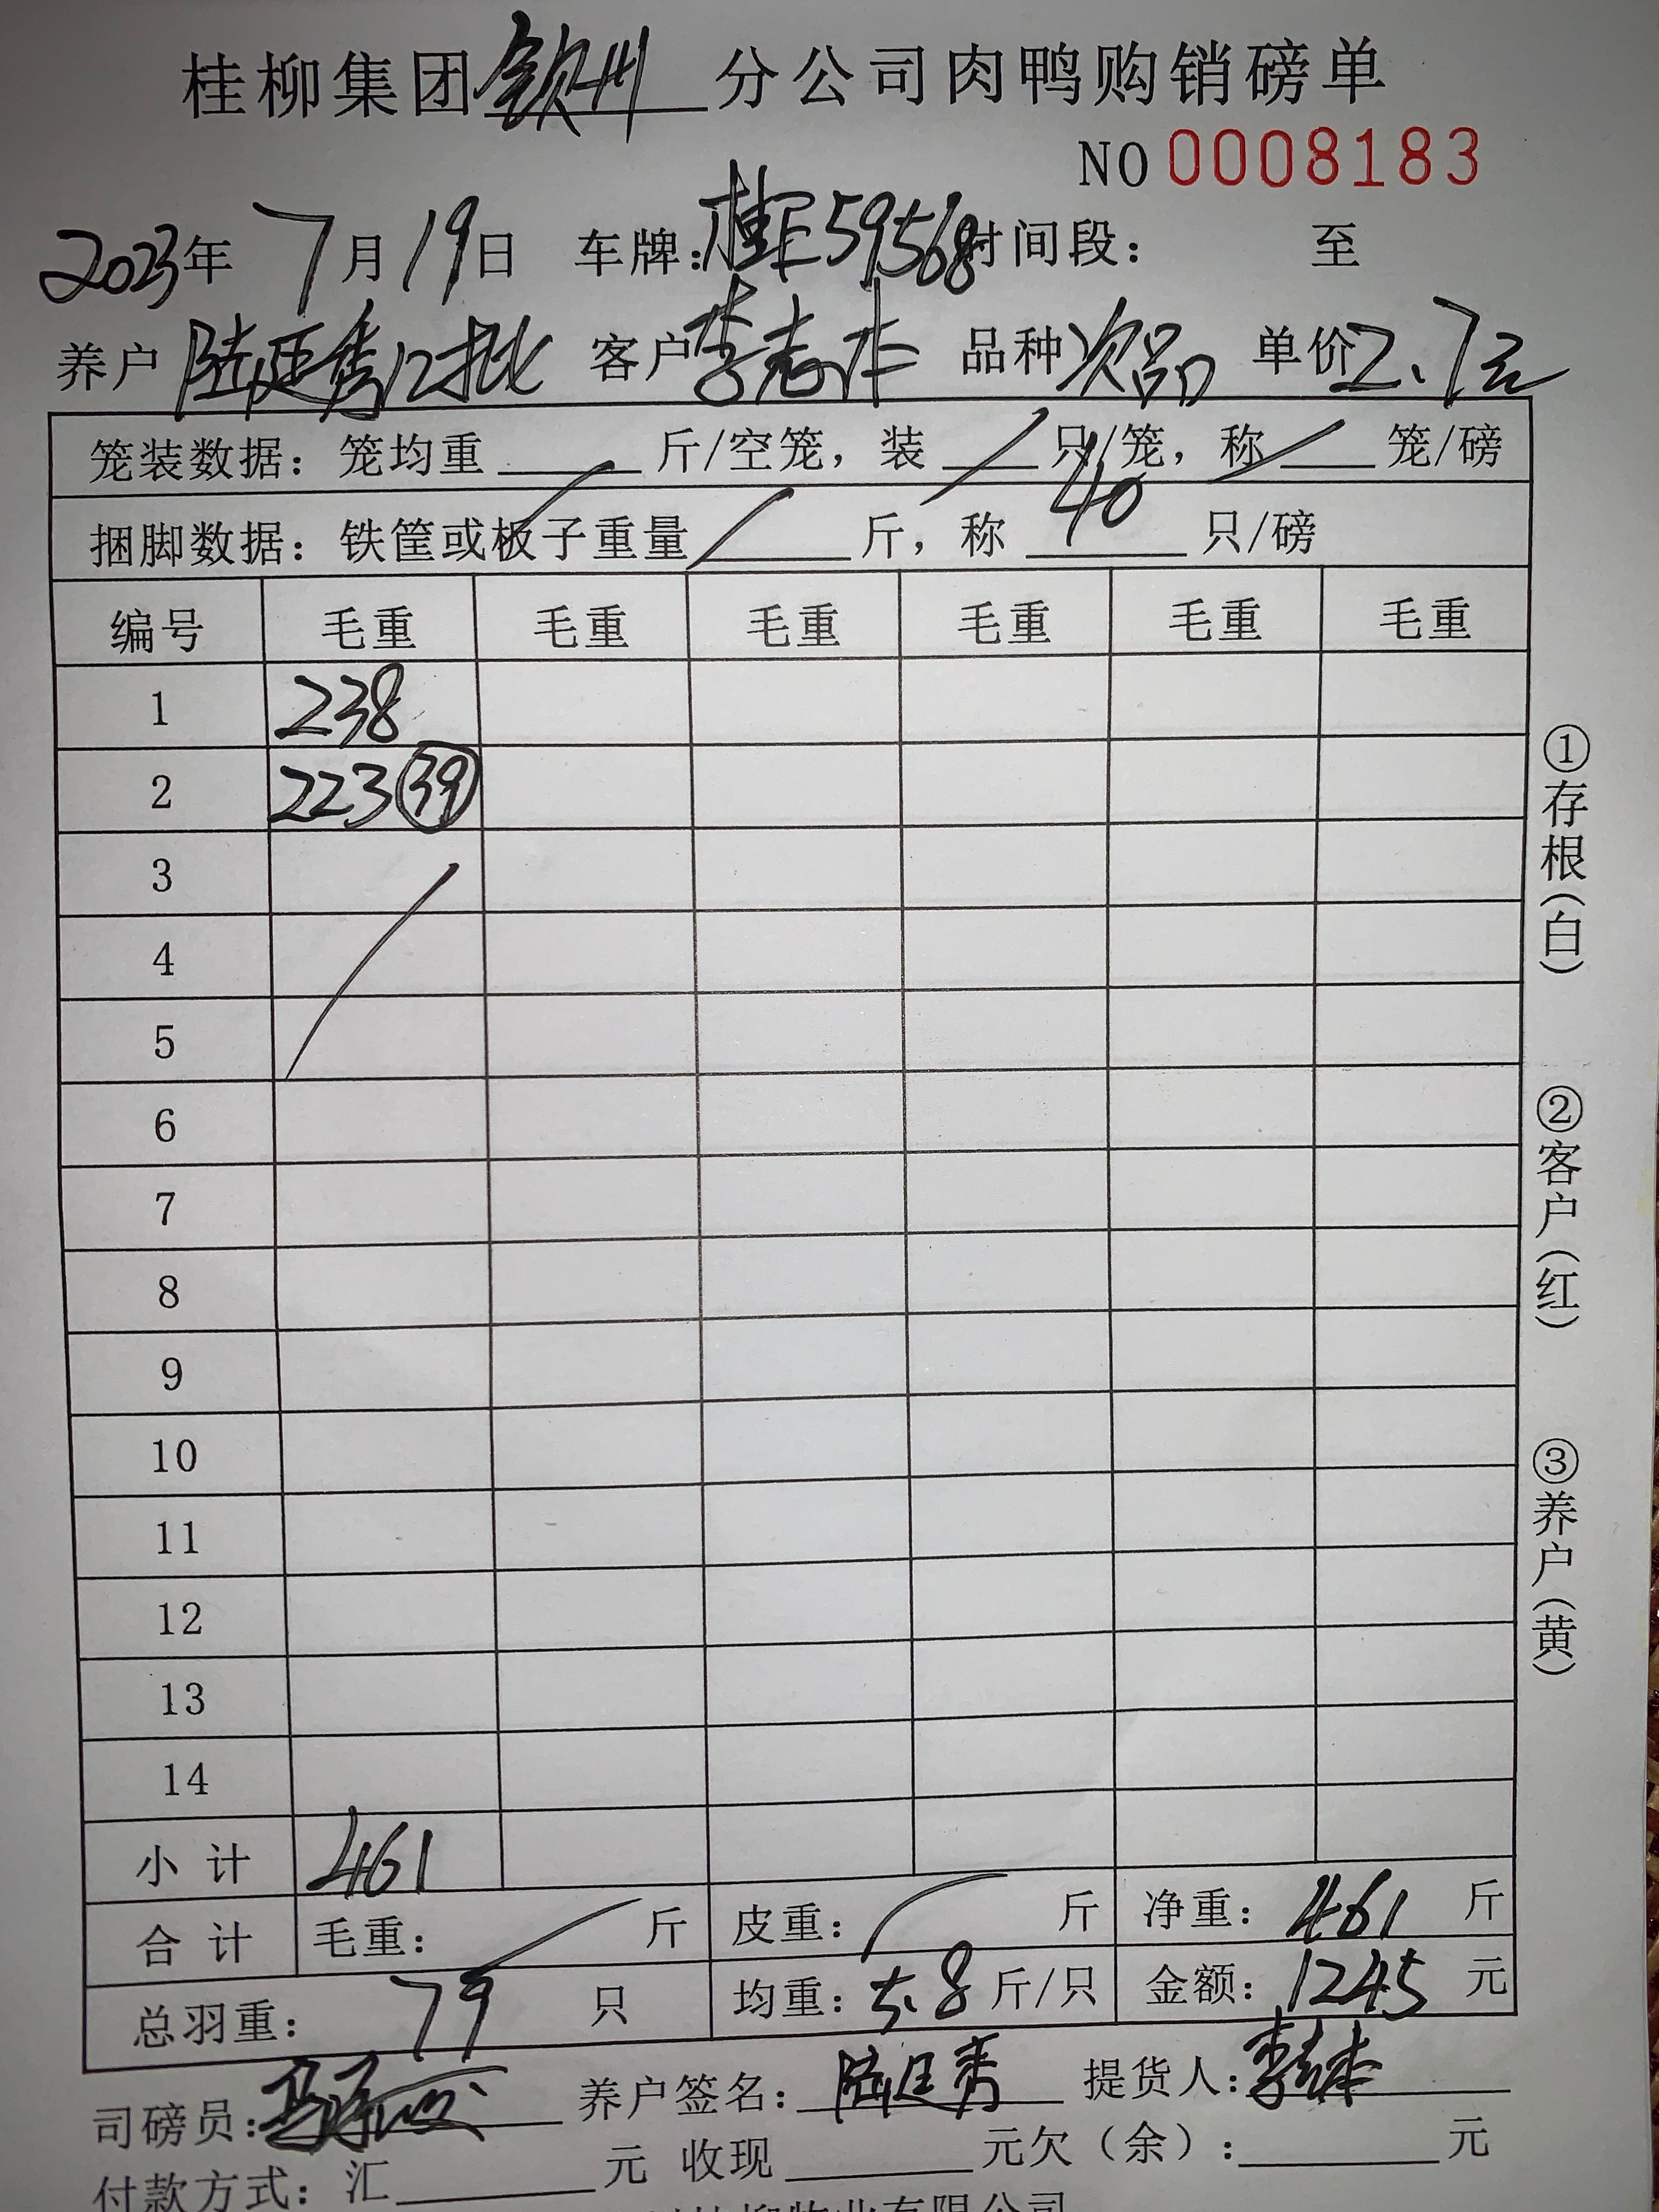 桂柳集团钦州分公司肉鸭购销磅单
NO 0008183
2023年 7月19日 车牌:桂E59568 时间段: 至
养户 陆廷秀12批 客户 李志 品种 次品 单价 2.7元
笼装数据: 笼均重 斤/空笼, 装 只/笼, 称 笼/磅
捆脚数据: 铁筐或板子重量 斤, 称 40 只/磅
编号 毛重 毛重 毛重 毛重 毛重 毛重
1 238
2 223 39
3
4
5
6
7
8
9
10
11
12
13
14
小计 461
合计 毛重: 斤 皮重: 斤 净重: 461 斤
总羽重: 79 只 均重: 5.8 斤/只 金额: 1245 元
司磅员: 养户签名: 陆廷秀 提货人: 李
付款方式: 汇 元 收现 元欠(余): 元
牧业有限公司
①存根(白)
②客户(红)
③养户(黄)